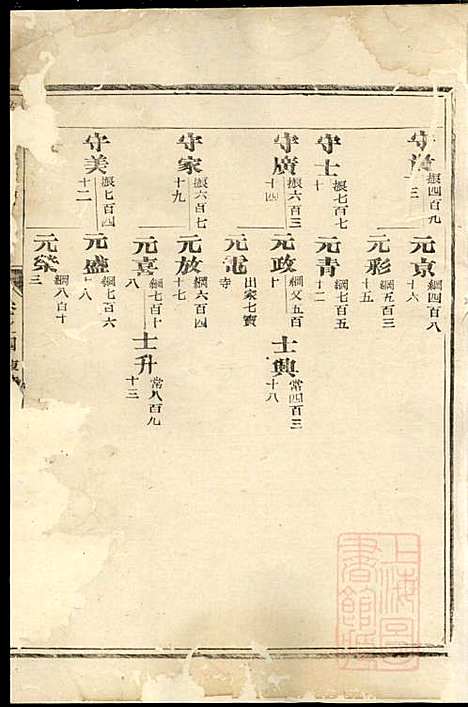 守
振四百九
三
元京
綱四百八
十六
元彩
綱五百九
十五
守士
振七百七
十
元青
綱七百五
十二
守廣
振六百三
十四
元政
綱又五百
十
士典
常四百三
十八
元電
出家七寶
寺
守家
振六百七
十九
元放
綱六百四
十七
元喜
綱七百十
八
士升
常八百九
十三
守美
振七百四
十二
元盛
綱七百六
十八
元榮
綱八百十
三
上海圖
書館藏